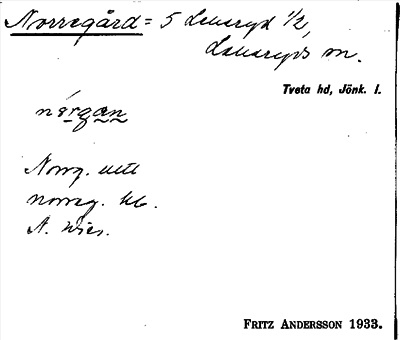 Norregård = 5 Lekeryd 1/2,
Lekeryds sn.
Tveta hd, Jönk. l.
nǫrgan
Norrg. utt
norreg. kb.
A. Wies.
FRITZ ANDERSSON 1933.